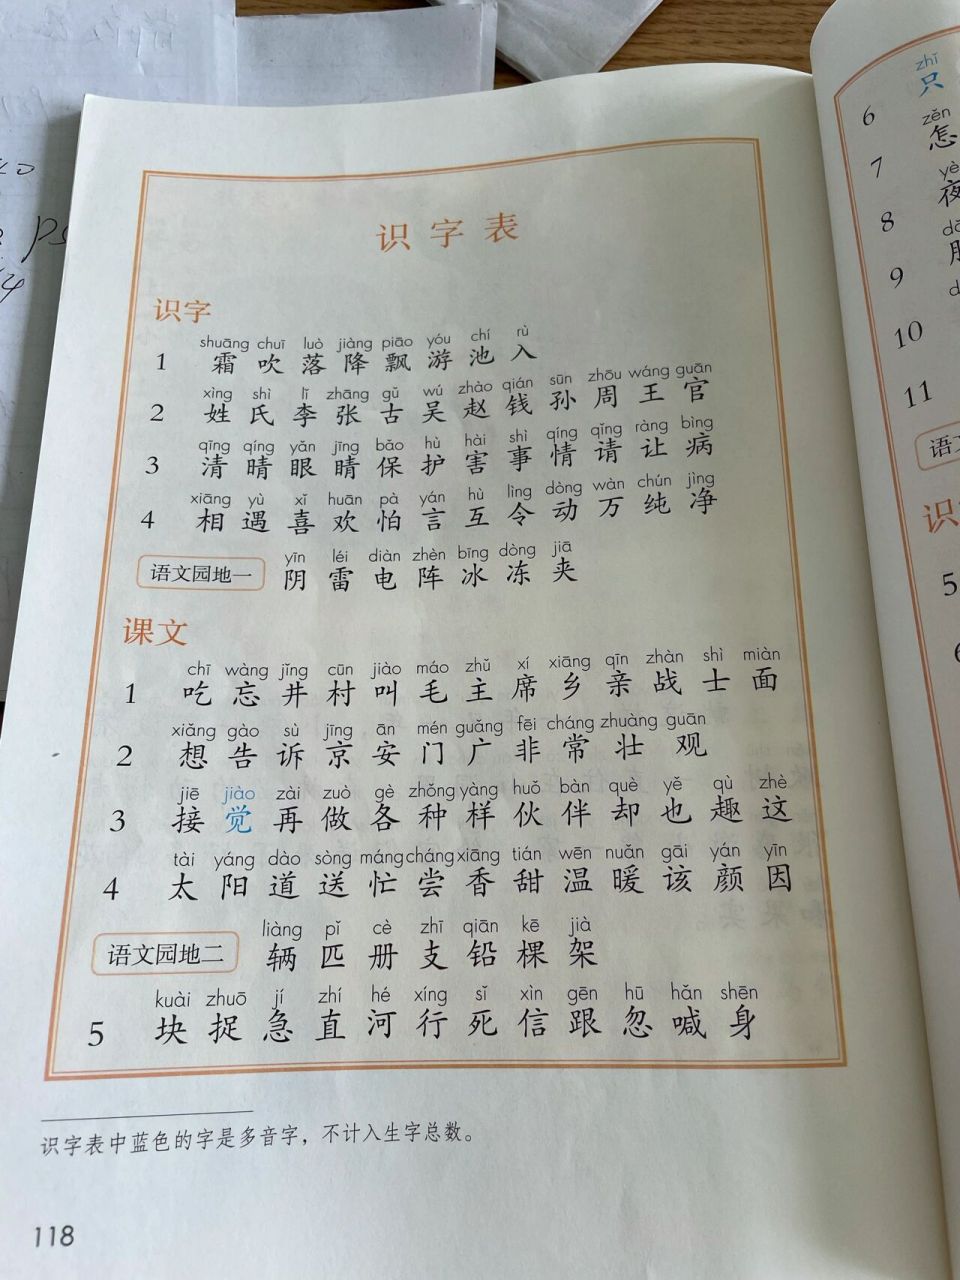 识字表
识字
shuāng chuī luò jiàng piāo yóu chí rù
1 霜 吹 落 降 飘 游 池 入
xìng shì lǐ zhāng gǔ wú zhào qián sūn zhōu wáng guān
2 姓 氏 李 张 古 吴 赵 钱 孙 周 王 官
qīng qíng yǎn jīng bǎo hù hài shì qíng qǐng ràng bìng
3 清 晴 眼 睛 保 护 害 事 情 请 让 病
xiāng yù xǐ huān pà yán hù lìng dòng wàn chún jìng
4 相 遇 喜 欢 怕 言 互 令 动 万 纯 净
yīn léi diàn zhèn bīng dòng jiā
语文园地一 阴 雷 电 阵 冰 冻 夹
课文
chī wàng jǐng cūn jiào máo zhǔ xí xiāng qīn zhàn shì miàn
1 吃 忘 井 村 叫 毛 主 席 乡 亲 战 士 面
xiǎng gào sù jīng ān mén guǎng fēi cháng zhuàng guān
2 想 告 诉 京 安 门 广 非 常 壮 观
jiē jiào zài zuò gè zhǒng yàng huǒ bàn què yě qù zhè
3 接 觉 再 做 各 种 样 伙 伴 却 也 趣 这
tài yáng dào sòng máng cháng xiāng tián wēn nuǎn gāi yán yīn
4 太 阳 道 送 忙 尝 香 甜 温 暖 该 颜 因
liàng pǐ cè zhī qiān kē jià
语文园地二 辆 匹 册 支 铅 棵 架
kuài zhuō jí zhí hé xíng sǐ xìn gēn hū hǎn shēn
5 块 捉 急 直 河 行 死 信 跟 忽 喊 身
识字表中蓝色的字是多音字，不计入生字总数。
118
zhī
6 只
zěn
7 怎
8 夜
9
10
11
5